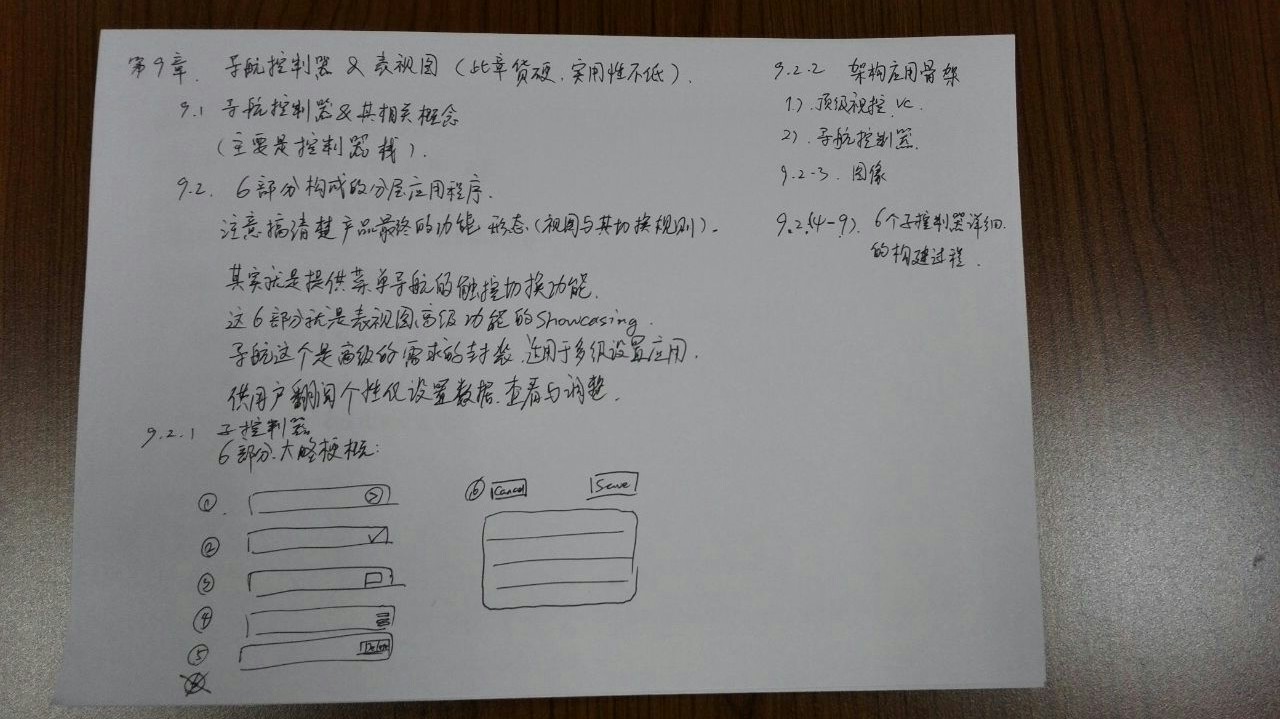 第9章. 导航控制器 & 表视图 (此章货硬,实用性不低).
9.1 导航控制器&其相关概念
(主要是控制器栈).
9.2. 6部分构成的分层应用程序.
注意搞清楚产品最终的功能形态(视图与其切换规则).
其实就是提供菜单导航的触控切换功能.
这6部分就是表视图高级功能的Showcasing.
导航这个是高级的需求的封装,适用于多级设置应用.
供用户翻阅个性化设置数据,查看与调整.
9.2.1 子控制器
6部分大略梗概:
①.
②
③
④
⑤ Delete
⑥ Cancel Save
9.2.2 架构应用骨架
1). 顶级视控VC.
2). 导航控制器.
9.2.3. 图像
9.2.(4-9). 6个子控制器详细
的构建过程.